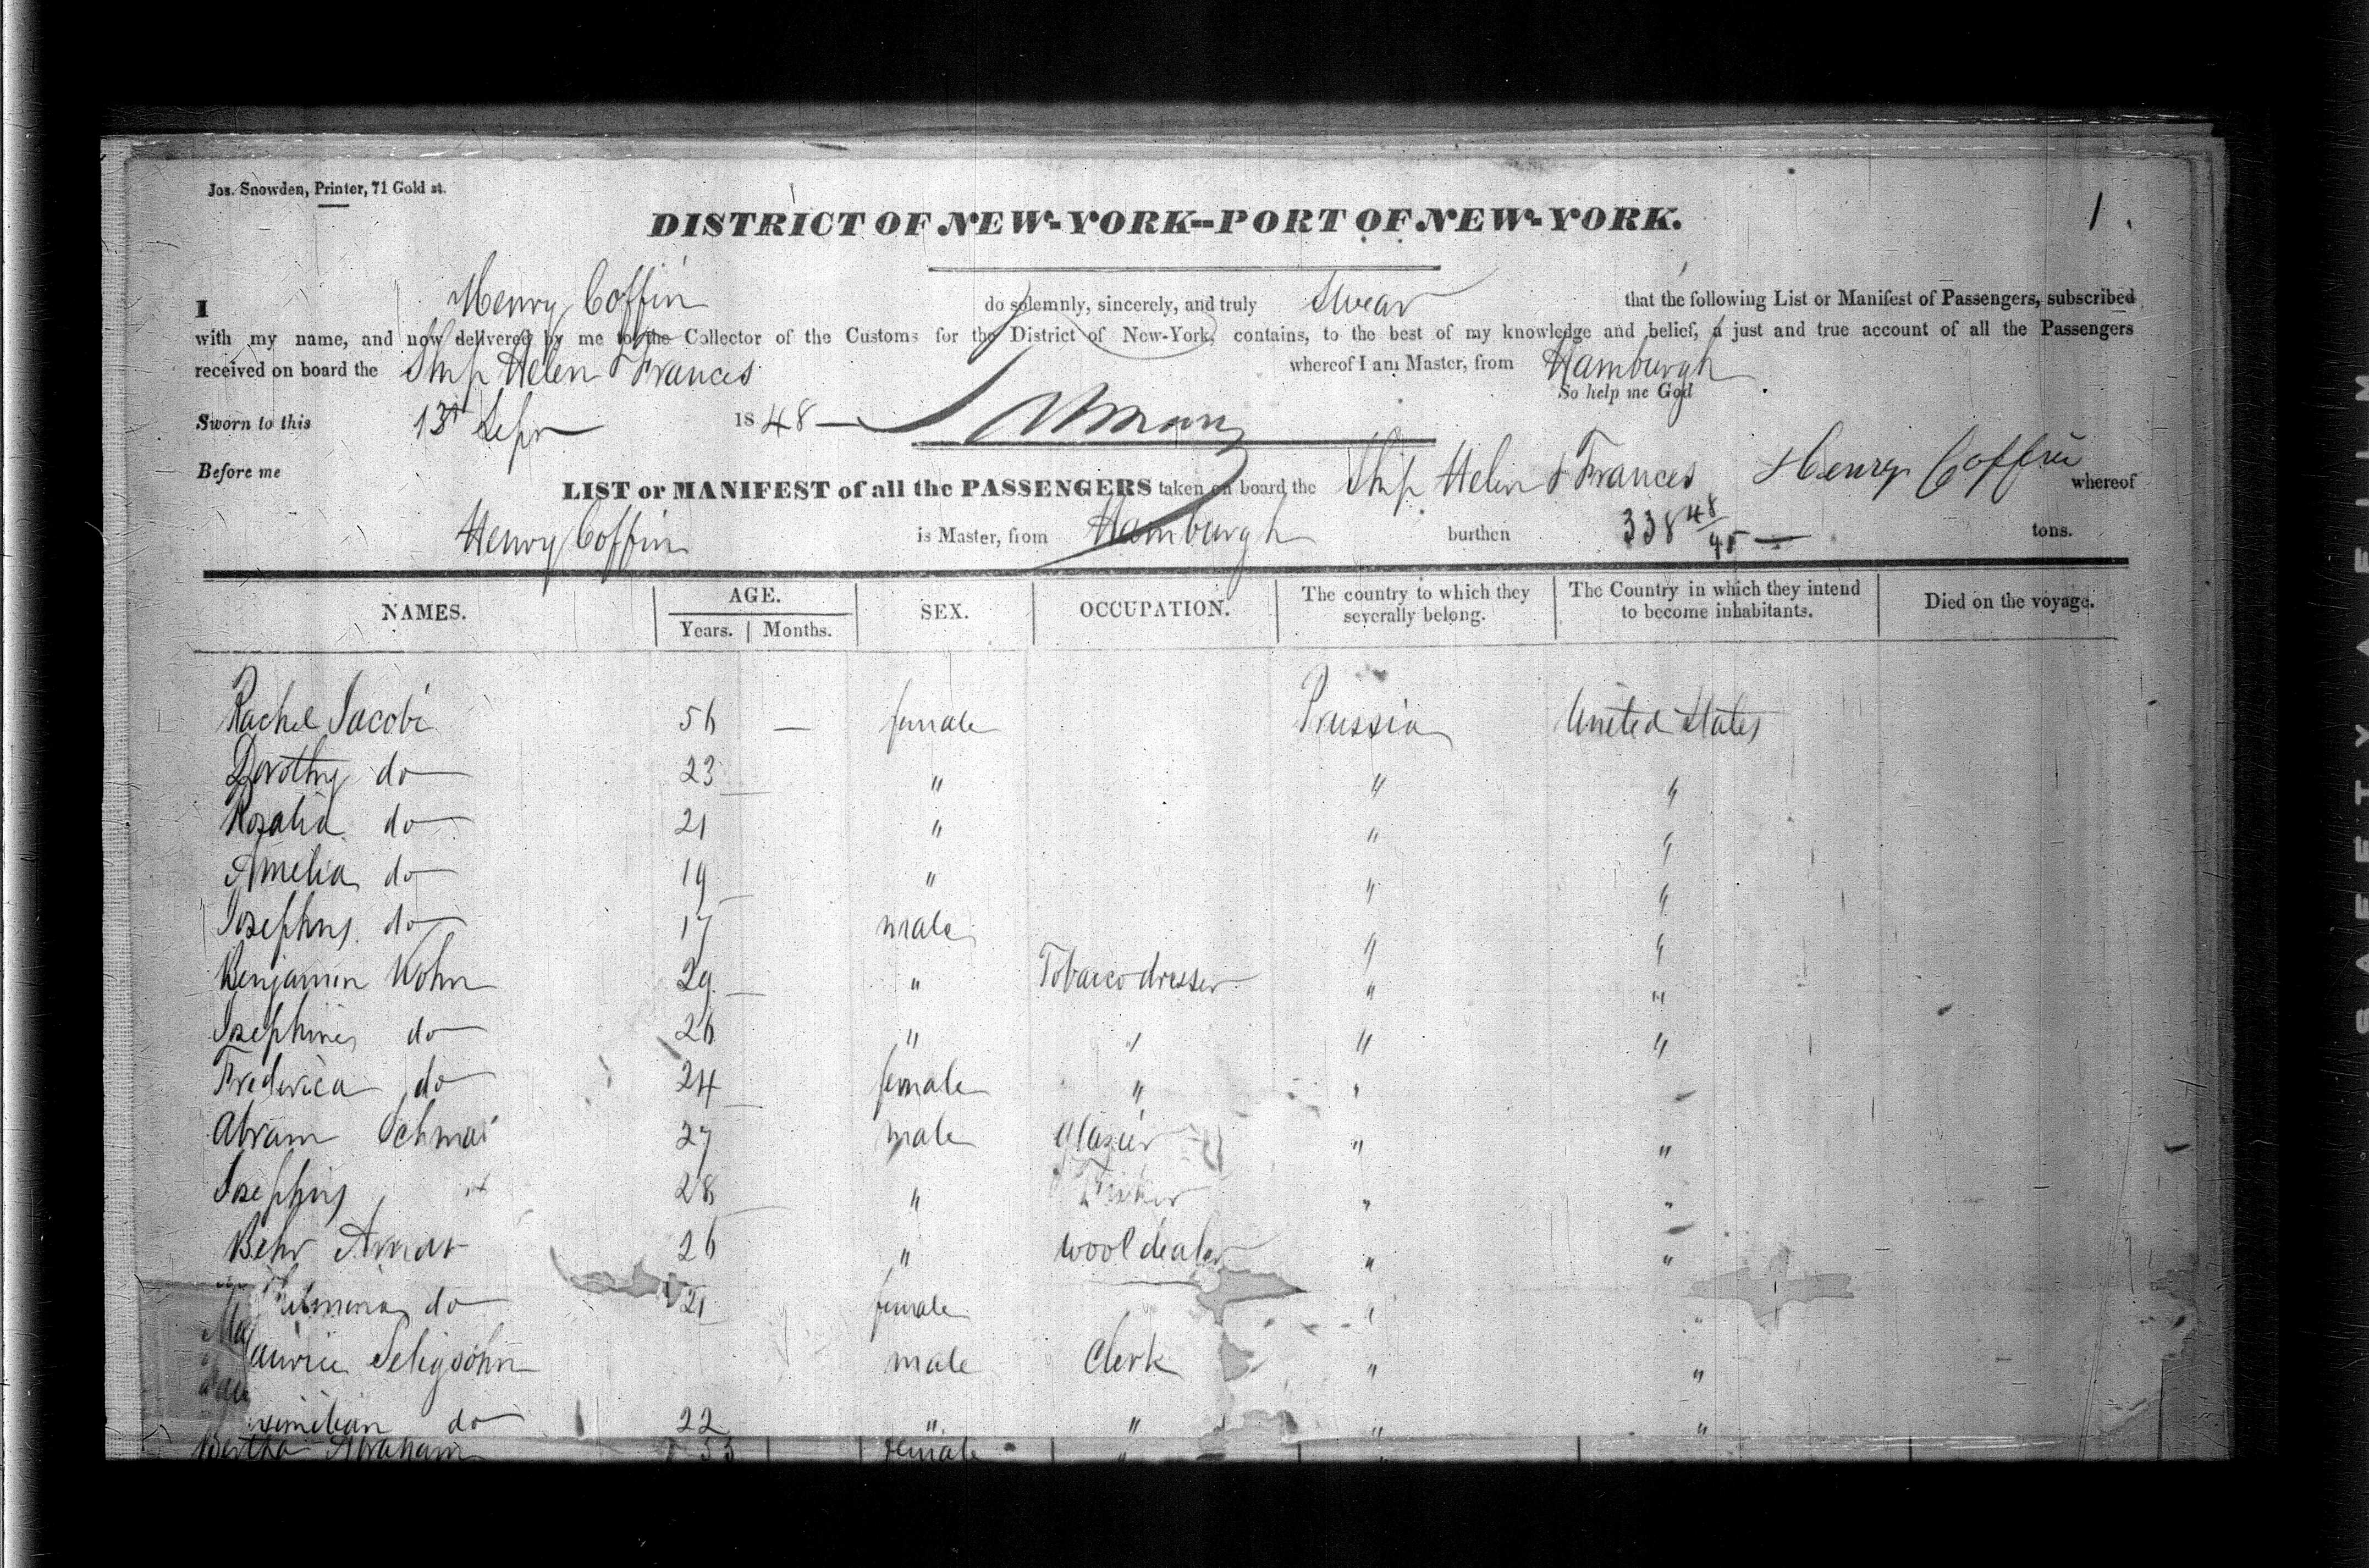 Jos. Snowden, Printer, 71 Gold st.
1.
DISTRICT OF NEW-YORK--PORT OF NEW-YORK.
I Henry Coffin do solemnly, sincerely, and truly Swear that the following List or Manifest of Passengers, subscribed
with my name, and now delivered by me to the Collector of the Customs for the District of New-York, contains, to the best of my knowledge and belief, a just and true account of all the Passengers
received on board the Ship Helen & Frances whereof I am Master, from Hamburgh
So help me God
Sworn to this 13th Sepr 1848
Before me
Henry Coffin
LIST or MANIFEST of all the PASSENGERS taken on board the Ship Helen & Frances whereof
Henry Coffin is Master, from Hamburgh burthen 338 48/95 tons.
NAMES. AGE. SEX. OCCUPATION. The country to which they severally belong. The Country in which they intend to become inhabitants. Died on the voyage.
Years. Months.
Rachel Jacobi 56 — female Prussia United States
Dorothy do 23 " " "
Rozalia do 21 " " "
Amelia do 19 " " "
Josephus do 17 male " "
Benjamin Kohn 29 " Tobacco dresser " "
Josephines do 26 " " " "
Frederica do 24 female " "
Abram 27 male Glazier " "
Josephus 28 " " "
Behr 26 " wool dealer " "
do 21 female " "
Maurice Seligsohn male Clerk " "
do 22 " " " "
Bertha Abraham 53 female "
SAFETY FILM